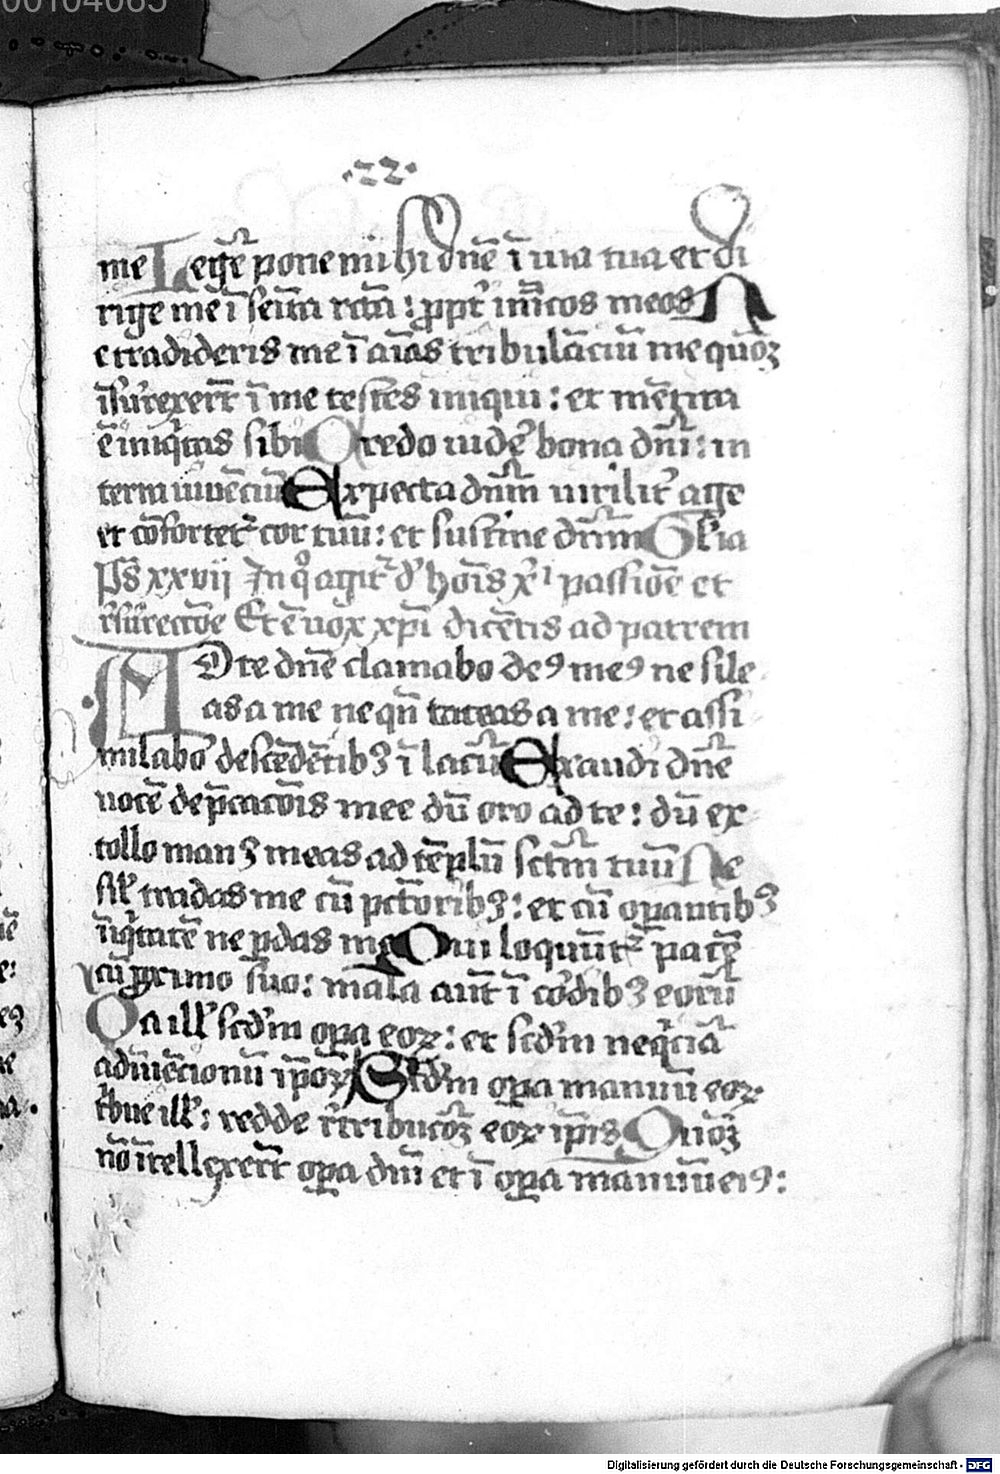 00104065
·22·
me Legē pone mihi dn̄e ī uia tua et di
rige me ī semita rcā: ꝓpt' inīcos meos N
e tradideris me ī aīas tribulāciū me quō̄ꝝ
īsurrexer̄t ī me testes iniqui: et mētita
ē iniq'tas sibi Credo uidē bona dn̄i: in
terra uiuēciū Expecta dn̄m uirilit' age
et cōfortet' cor tuū: et sustine dn̄m Gl'ia
Ps̄ xxvij In qͦ agit' d' hoīs xͥ passiōe et
r̄surrectōe Et ē uox xpī dicētis ad patrem
AD te dn̄e clamabo deꝰ meꝰ ne sile
as a me neqn̄ taceas a me: et assi
milabo' descēdētibꝫ ī lacū Exaudi dn̄e
uocē dep̄catōis mee dū oro ad te: dū ex
tollo manꝫ meas ad tēplū sctm̄ tuū Ne
sil' tradas me cū pctōribꝫ: et cū oꝑantibꝫ
īiq'tatē ne ꝑdas me Qui loquūt' pacē
cū ꝓximo suo: mala aūt ī cordibꝫ eorū
Da ill' scd'm oꝑa eoꝝ: et scd'm neq'ciā
adīuēcionū ip̄oꝝ Scd'm oꝑa manuū eoꝝ
t'bue ill': redde r̄tribucōꝫ eoꝝ ip̄is Quō̄ꝝ
nō ītellexer̄t oꝑa dn̄i et ī oꝑa manuū eiꝰ:
Digitalisierung gefördert durch die Deutsche Forschungsgemeinschaft - DFG